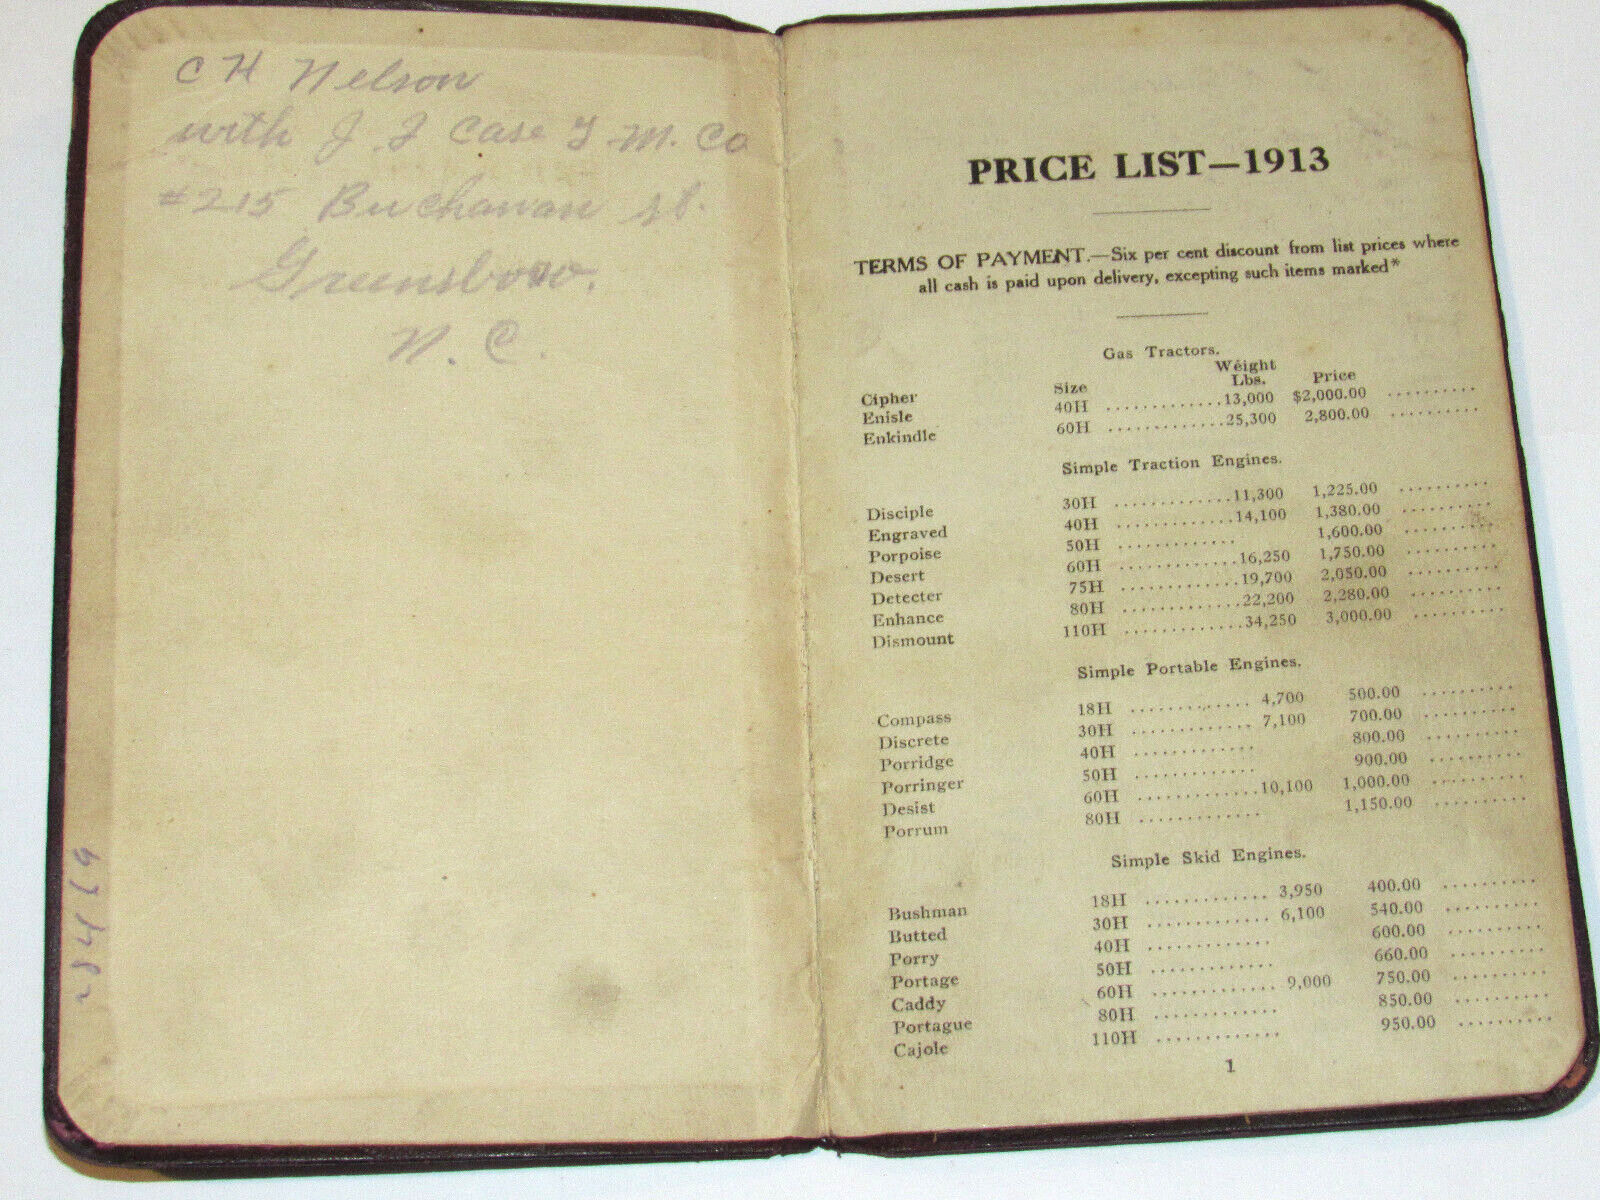 C H Nelson
with J I Case T M. Co
#215 Buchanan st.
Greensboro.
N. C.
PRICE LIST—1913
TERMS OF PAYMENT.—Six per cent discount from list prices where
all cash is paid upon delivery, excepting such items marked*
Gas Tractors.
Cipher Size Weight Lbs. Price
Enisle 40H .............13,000 $2,000.00 ..........
Enkindle 60H .............25,300 2,800.00 ..........
Simple Traction Engines.
Disciple 30H .............11,300 1,225.00 ..........
Engraved 40H .............14,100 1,380.00 ..........
Porpoise 50H ............. 1,600.00 ..........
Desert 60H .............16,250 1,750.00 ..........
Detecter 75H .............19,700 2,050.00 ..........
Enhance 80H .............22,200 2,280.00 ..........
Dismount 110H .............34,250 3,000.00 ..........
Simple Portable Engines.
Compass 18H ............. 4,700 500.00 ..........
Discrete 30H ............. 7,100 700.00 ..........
Porridge 40H ............. 800.00 ..........
Porringer 50H ............. 900.00 ..........
Desist 60H .............10,100 1,000.00 ..........
Porrum 80H ............. 1,150.00 ..........
Simple Skid Engines.
Bushman 18H ............. 3,950 400.00 ..........
Butted 30H ............. 6,100 540.00 ..........
Porry 40H ............. 600.00 ..........
Portage 50H ............. 660.00 ..........
Caddy 60H ............. 9,000 750.00 ..........
Portague 80H ............. 850.00 ..........
Cajole 110H ............. 950.00 ..........
1